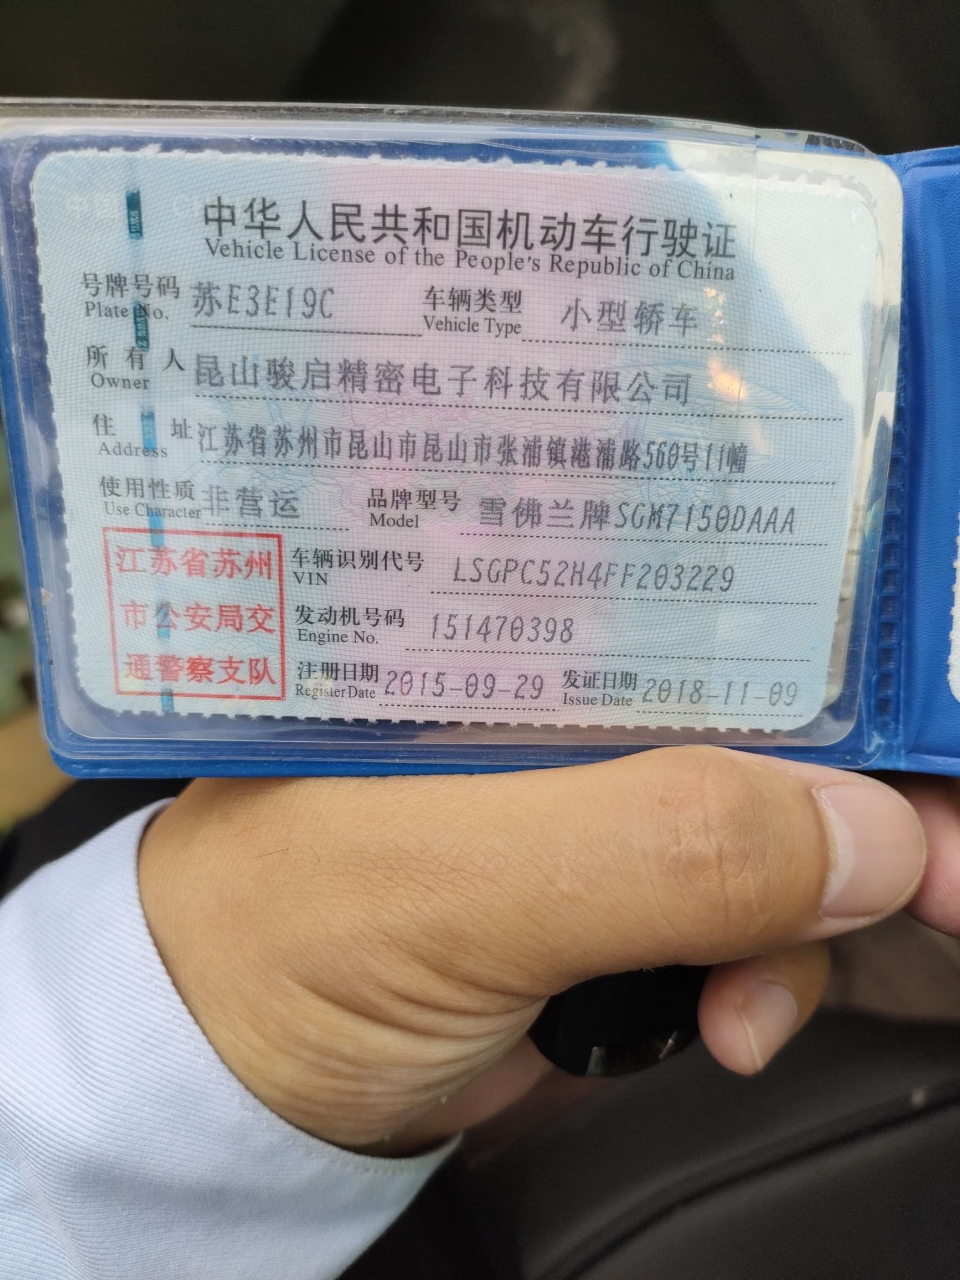 中华人民共和国机动车行驶证
Vehicle License of the People's Republic of China
号牌号码 苏E3E19C 车辆类型 小型轿车
Plate No. Vehicle Type
所有人 昆山骏启精密电子科技有限公司
Owner
住址 江苏省苏州市昆山市昆山市张浦镇港浦路560号11幢
Address
使用性质 非营运 品牌型号 雪佛兰牌SGM7150DAAA
Use Character Model
江苏省苏州
市公安局交
通警察支队
车辆识别代号 LSGPC52H4FF203229
VIN
发动机号码 151470398
Engine No.
注册日期 2015-09-29 发证日期 2018-11-09
Register Date Issue Date